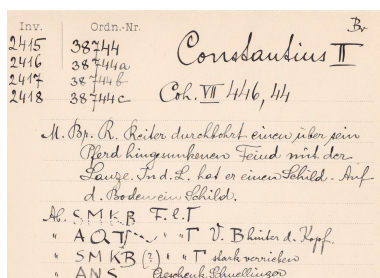 Br
Inv. Ordn.-Nr.
2415 38744 Constantius II
2416 38744a
2417 38744b
2418 38744c Coh. VII 446, 44
M. Br. R. Reiter durchbohrt einen über sein
Pferd hingesunkenen Feind mit der
Lanze. In d. L. hat er einen Schild. Auf
d. Boden ein Schild.
Ab. S M K B Γ. ε. Γ
" " Γ V. B hinter d. Kopf.
" S M K B (?) " " Γ stark verrieben
" A N S Geschenk Schnellinger